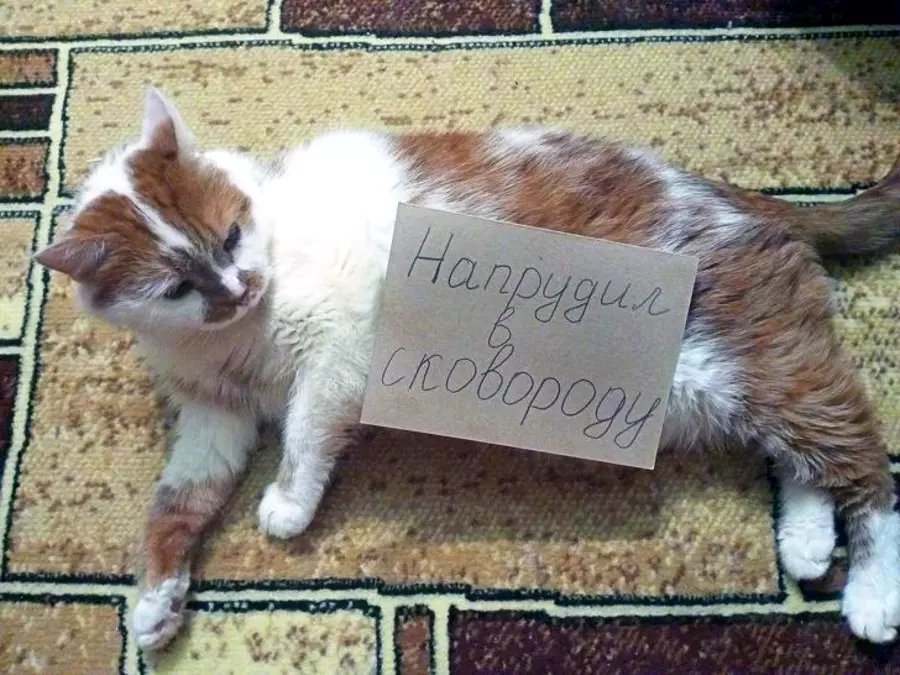 Напрудил
в
сковороду